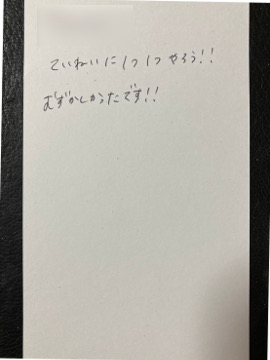 ていねいに1つ1つやろう!!
むずかしかったです!!